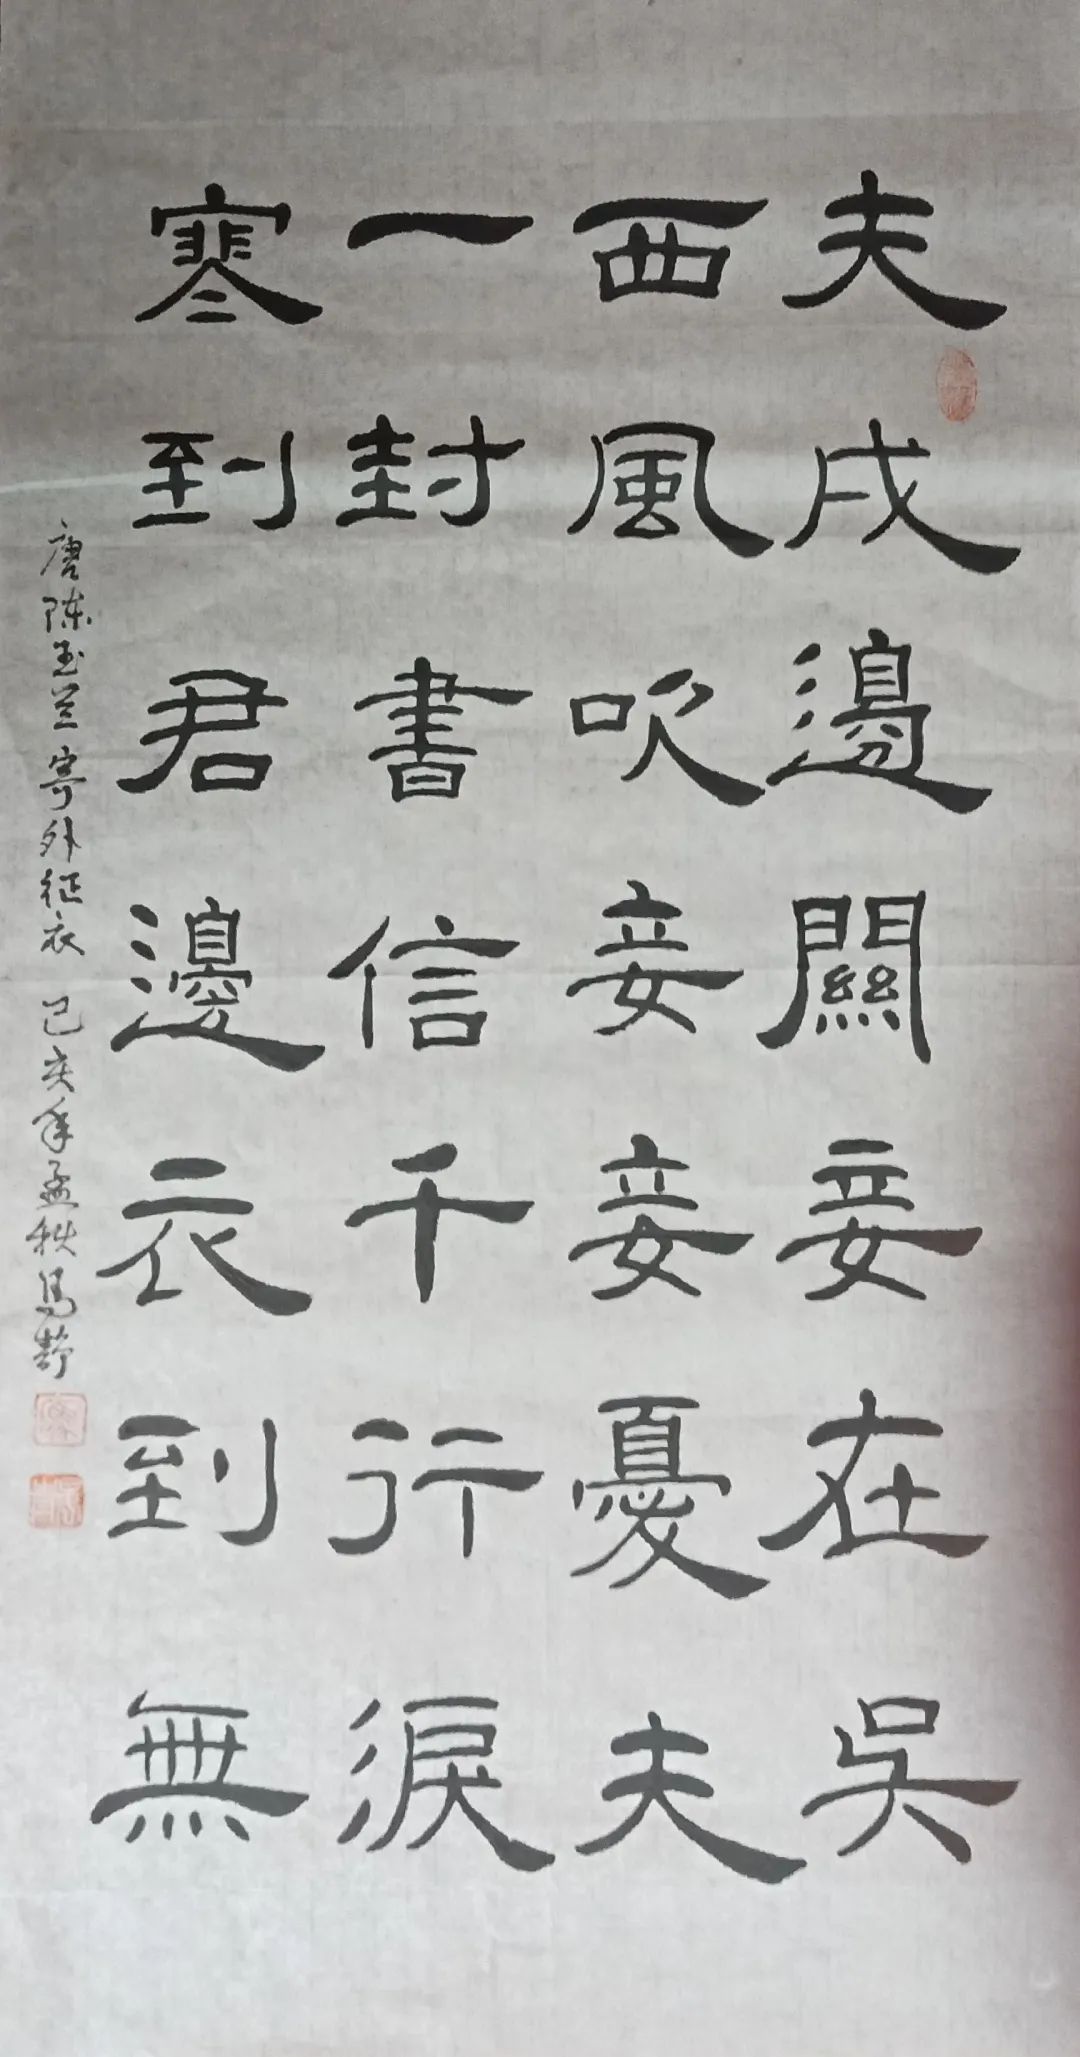 夫戍邊關妾在吳
西風吹妾妾憂夫
一封書信千行淚
寒到君邊衣到無
唐陈玉兰寄外征衣 己亥年孟秋馬静